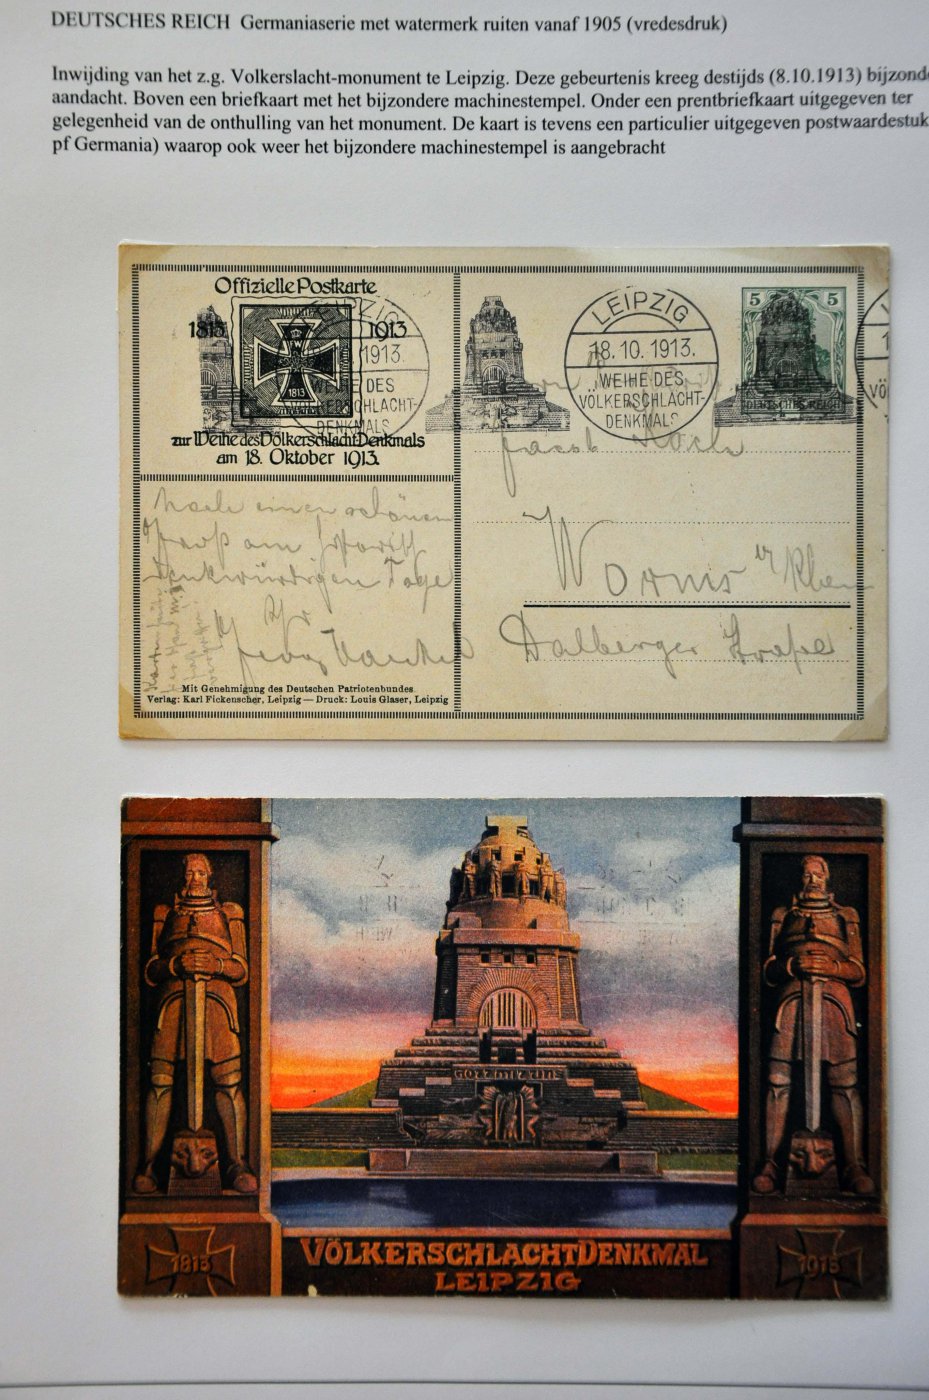 DEUTSCHES REICH Germaniaserie met watermerk ruiten vanaf 1905 (vredesdruk)
Inwijding van het z.g. Volkerslacht-monument te Leipzig. Deze gebeurtenis kreeg destijds (8.10.1913) bijzond
aandacht. Boven een briefkaart met het bijzondere machinestempel. Onder een prentbriefkaart uitgegeven ter
gelegenheid van de onthulling van het monument. De kaart is tevens een particulier uitgegeven postwaardestuk
pf Germania) waarop ook weer het bijzondere machinestempel is aangebracht
Offizielle Postkarte
1813 1913
1813
zur Weihe des Völkerschlacht Denkmals
am 18. Oktober 1913.
LEIPZIG
1913.
WEIHE DES
VÖLKERSCHLACHT-
DENKMALS
LEIPZIG
18.10.1913.
WEIHE DES
VÖLKERSCHLACHT-
DENKMALS
5 5
DEUTSCHES REICH
Jacob Koch
Worms
Dalberger Straße
Noch einen schönen
Gruß
denkwürdigen Tage
Mit Genehmigung des Deutschen Patriotenbundes
Verlag: Karl Fickenscher, Leipzig — Druck: Louis Glaser, Leipzig
GOTT MIT UNS
1813
1913
VÖLKERSCHLACHTDENKMAL
LEIPZIG